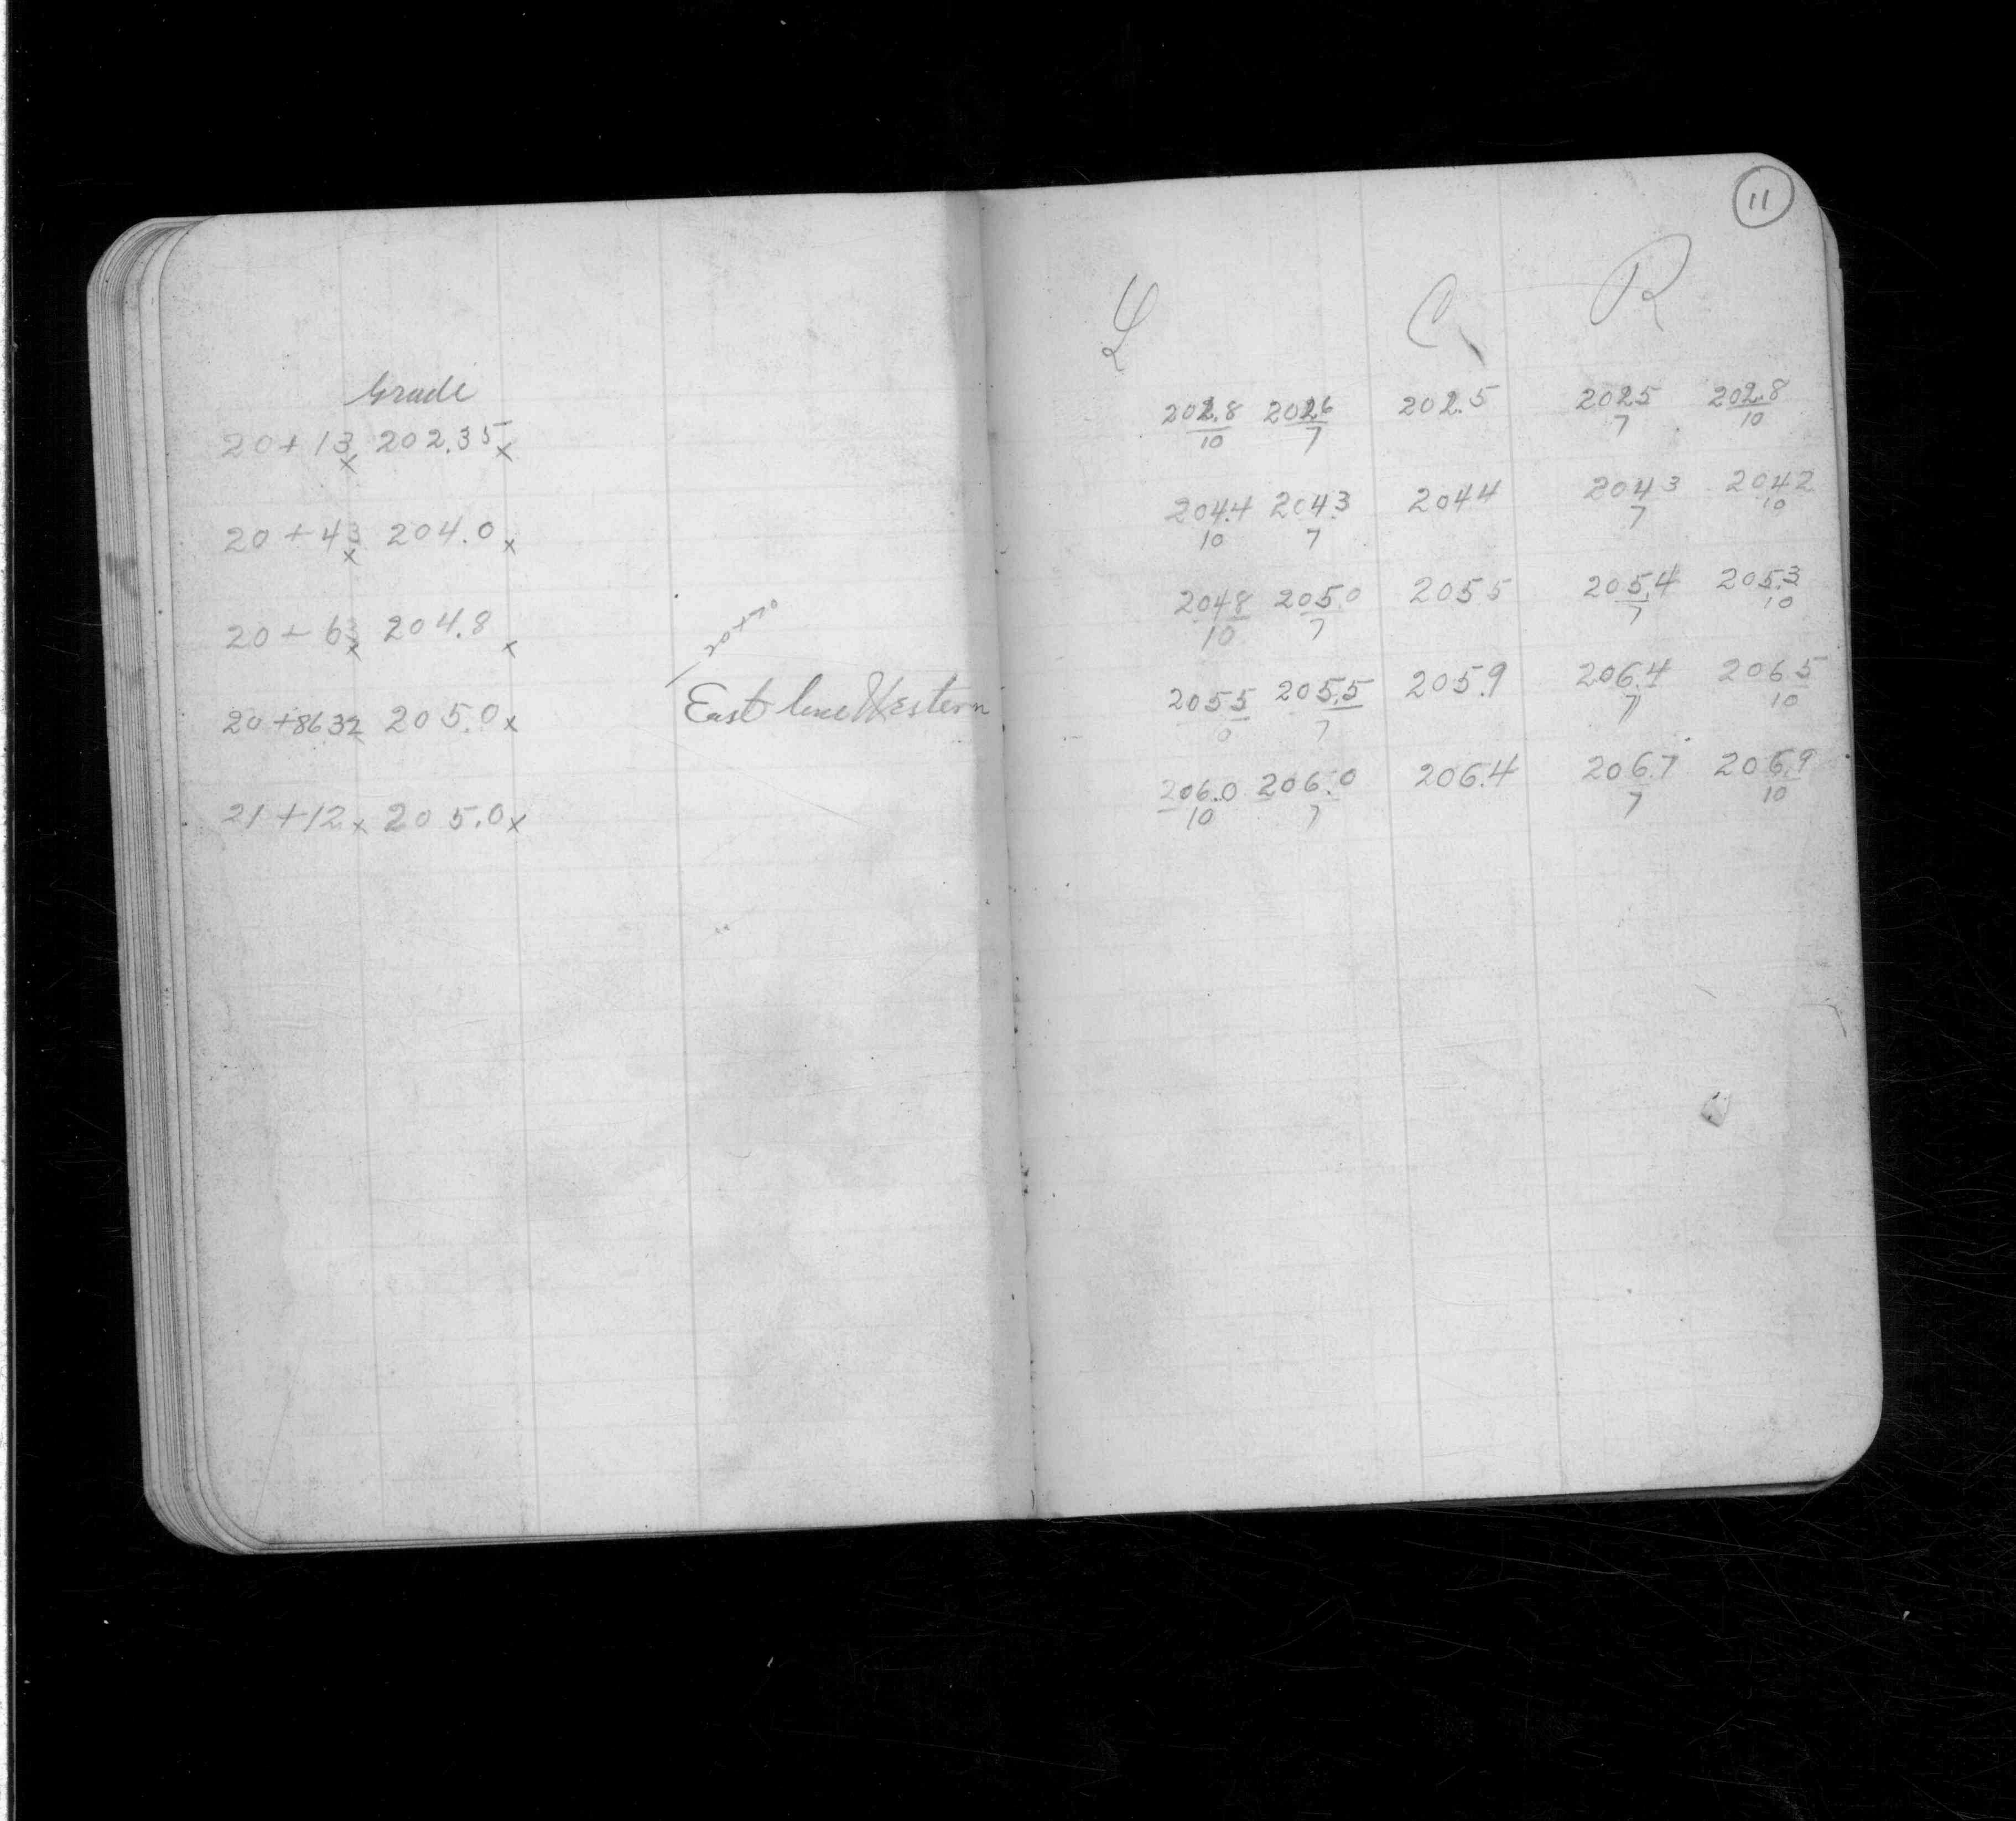 Grade
20+13 x 202.35 x
20+43 x 204.0 x
20+63 x 204.8 x
20+70
East line Western
20+8632 205.0 x
21+12 x 205.0 x
11
L C R
202.8 202.6 202.5 202.5 202.8
10 7 7 10
204.4 204.3 204.4 204.3 204.2
10 7 7 10
204.8 205.0 205.5 205.4 205.3
10 7 7 10
205.5 205.5 205.9 206.4 206.5
0 7 7 10
206.0 206.0 206.4 206.7 206.9
10 7 7 10